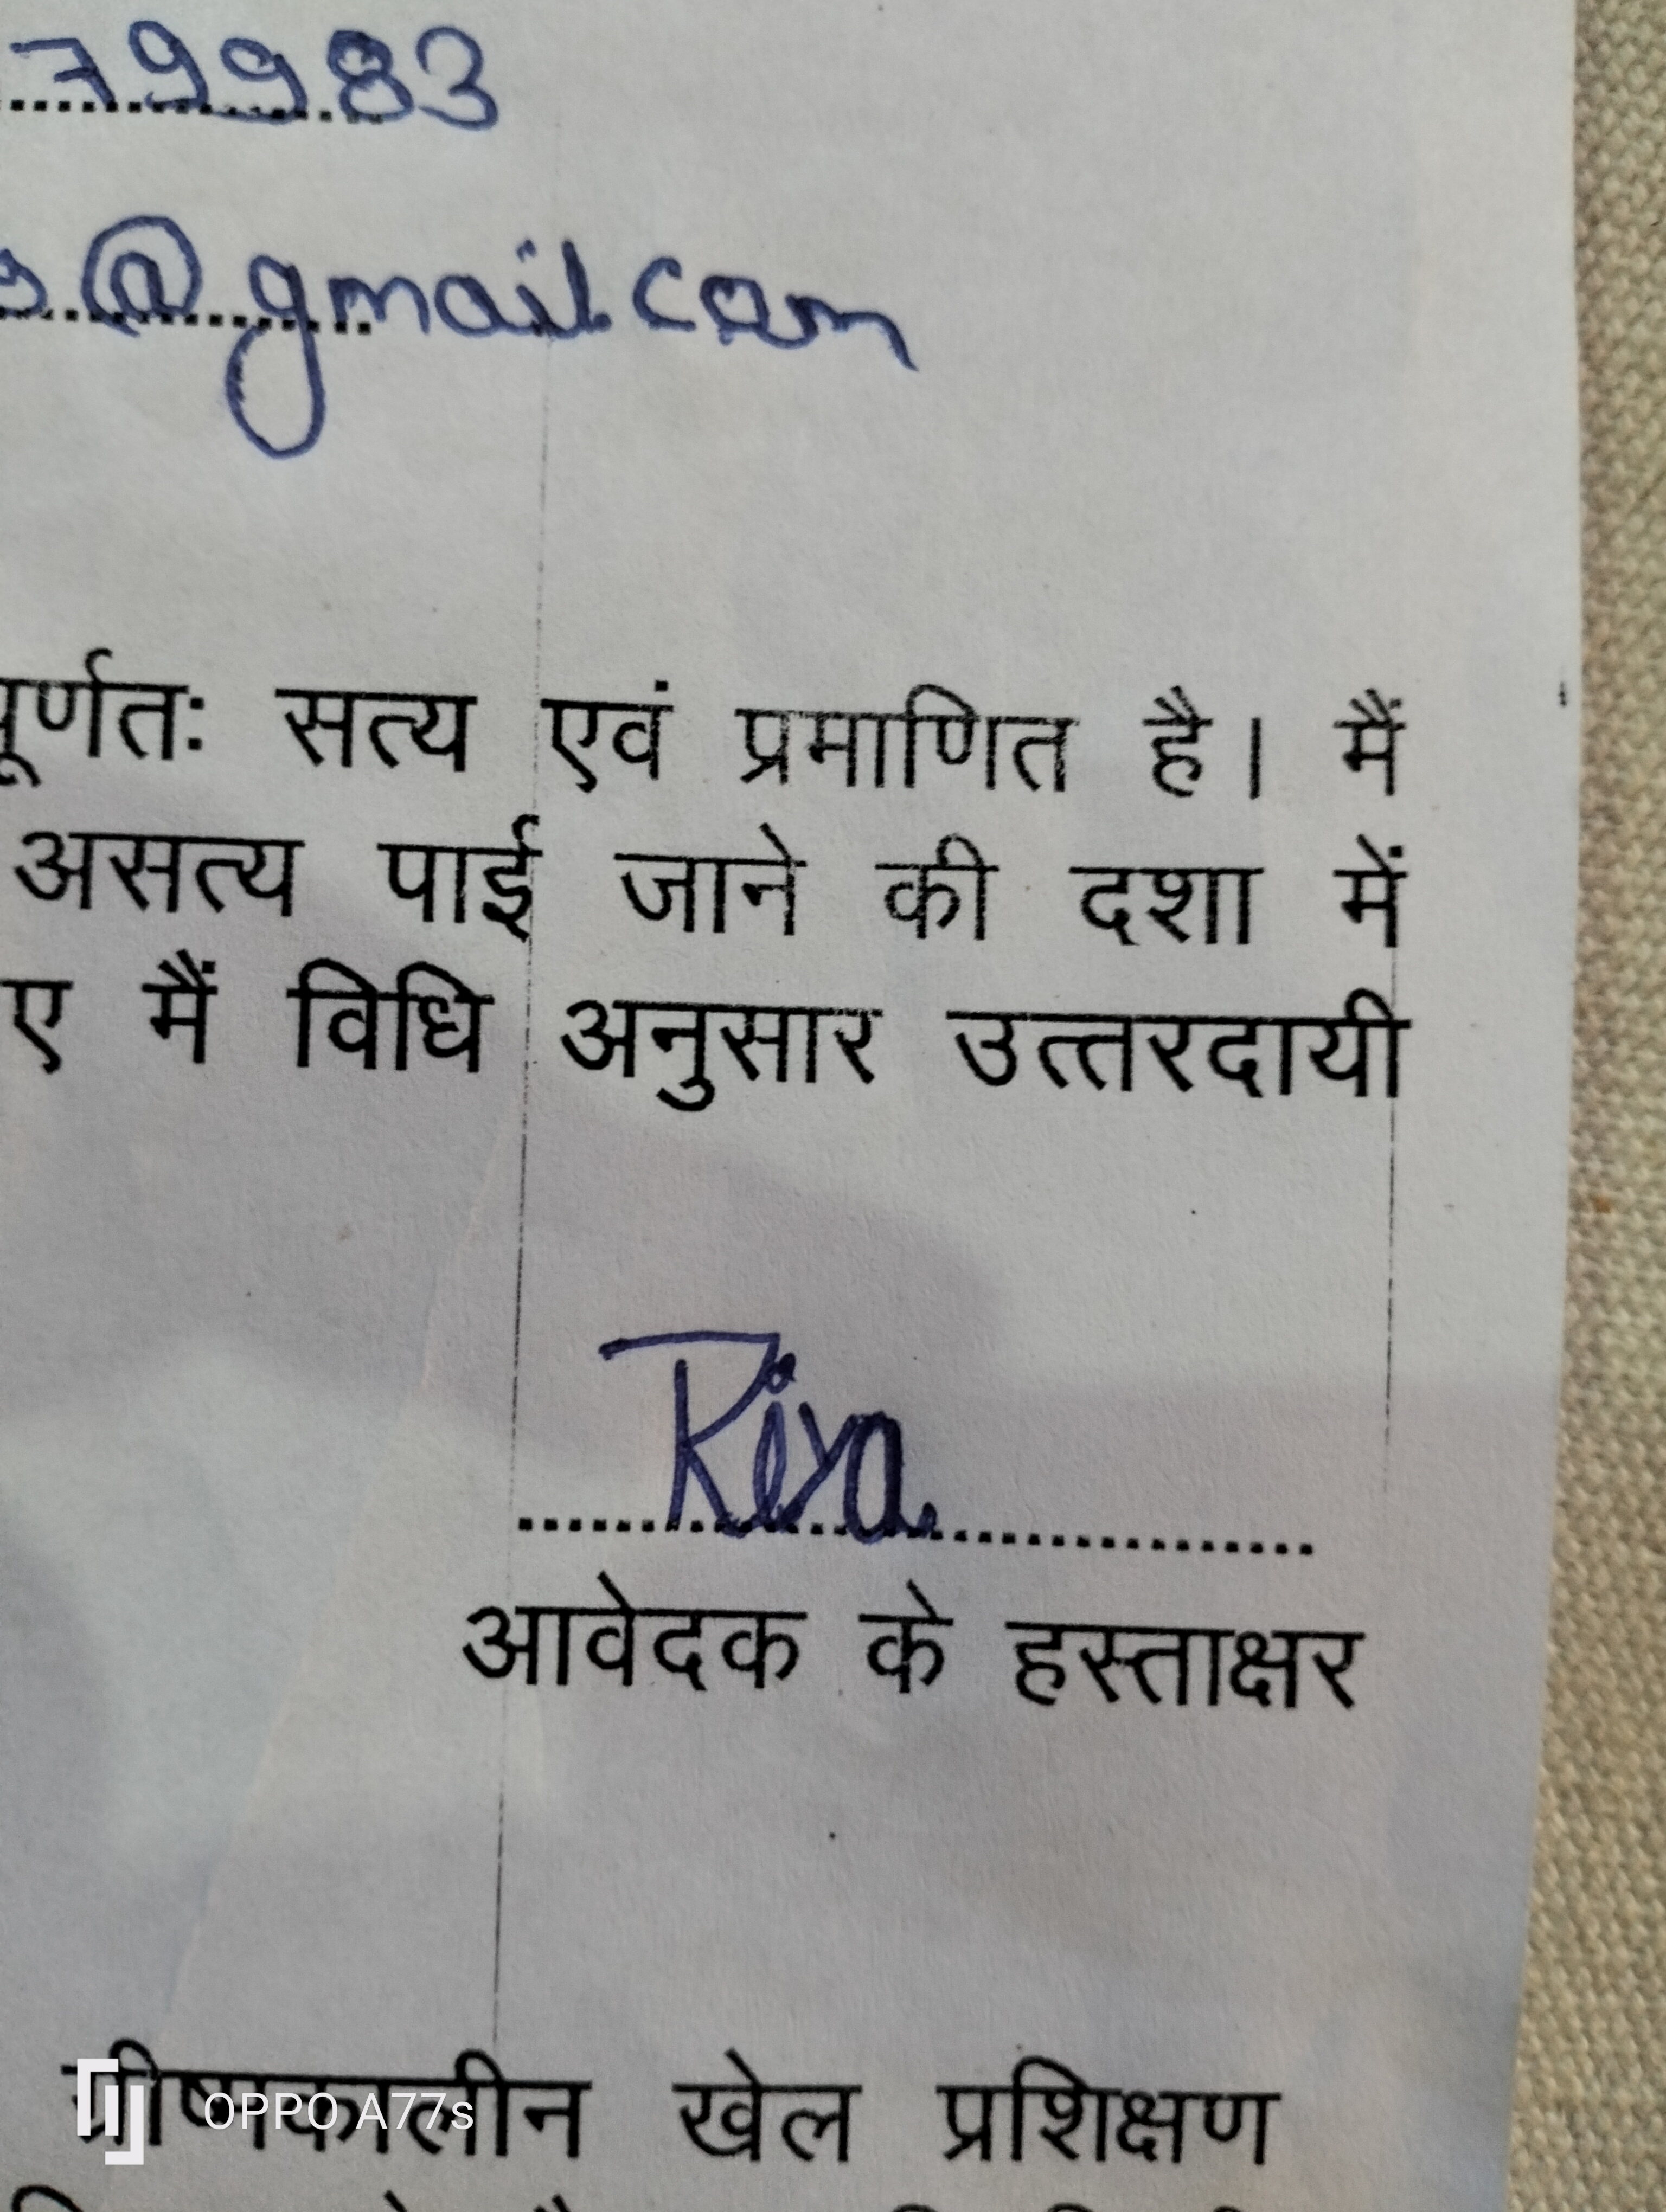 79983
@gmail.com
पूर्णतः सत्य एवं प्रमाणित है। मैं
असत्य पाई जाने की दशा में
ए मैं विधि अनुसार उत्तरदायी
Riya
आवेदक के हस्ताक्षर
ग्रीष्मकालीन खेल प्रशिक्षण
OPPO A77s